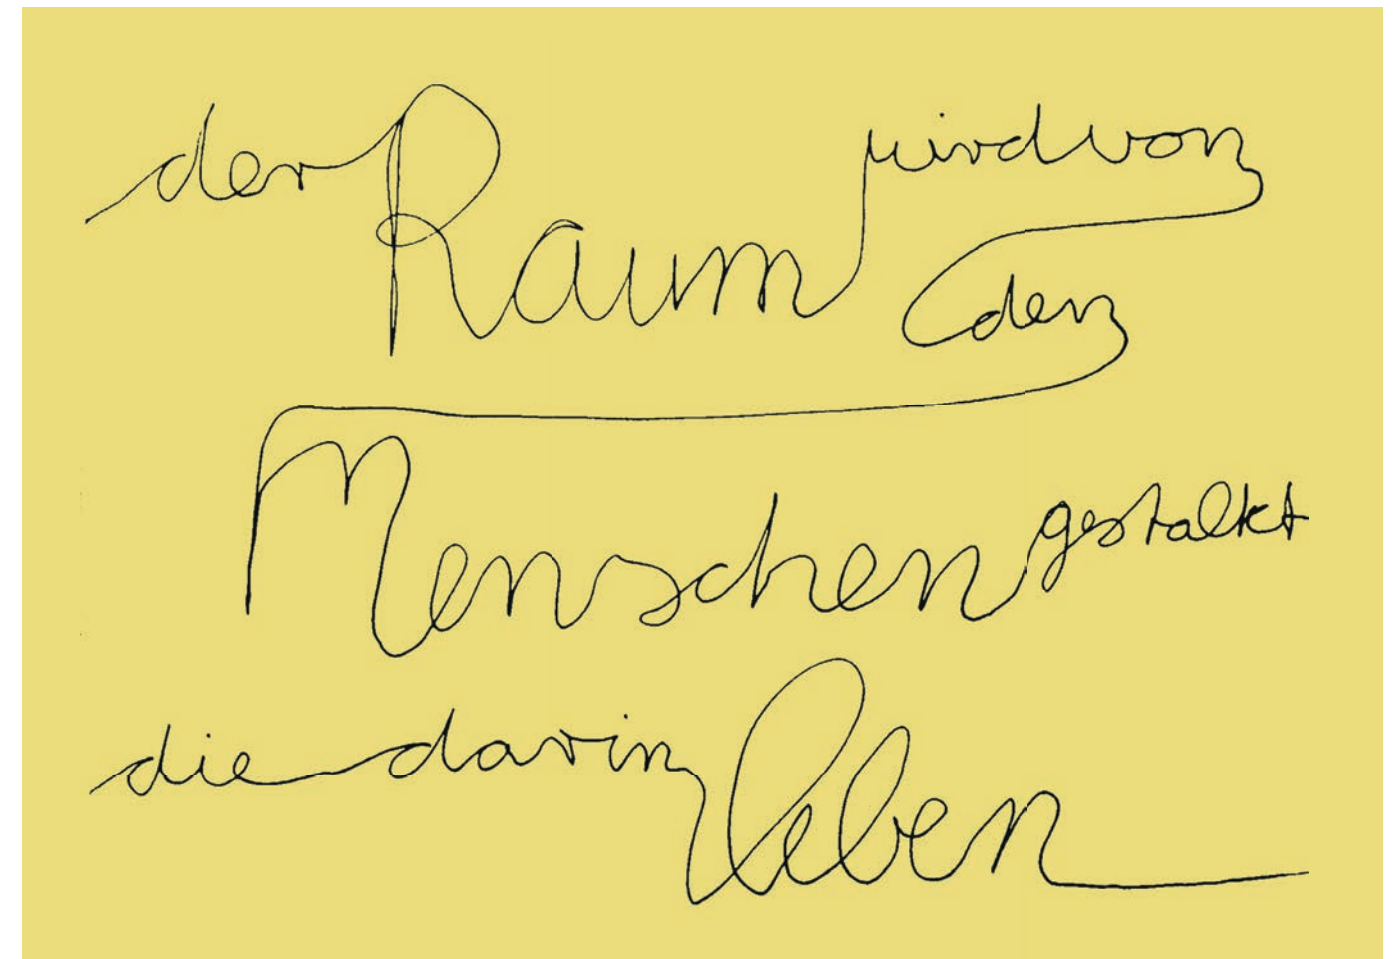 der Raum wird von
den
Menschen gestalkt
die darin leben